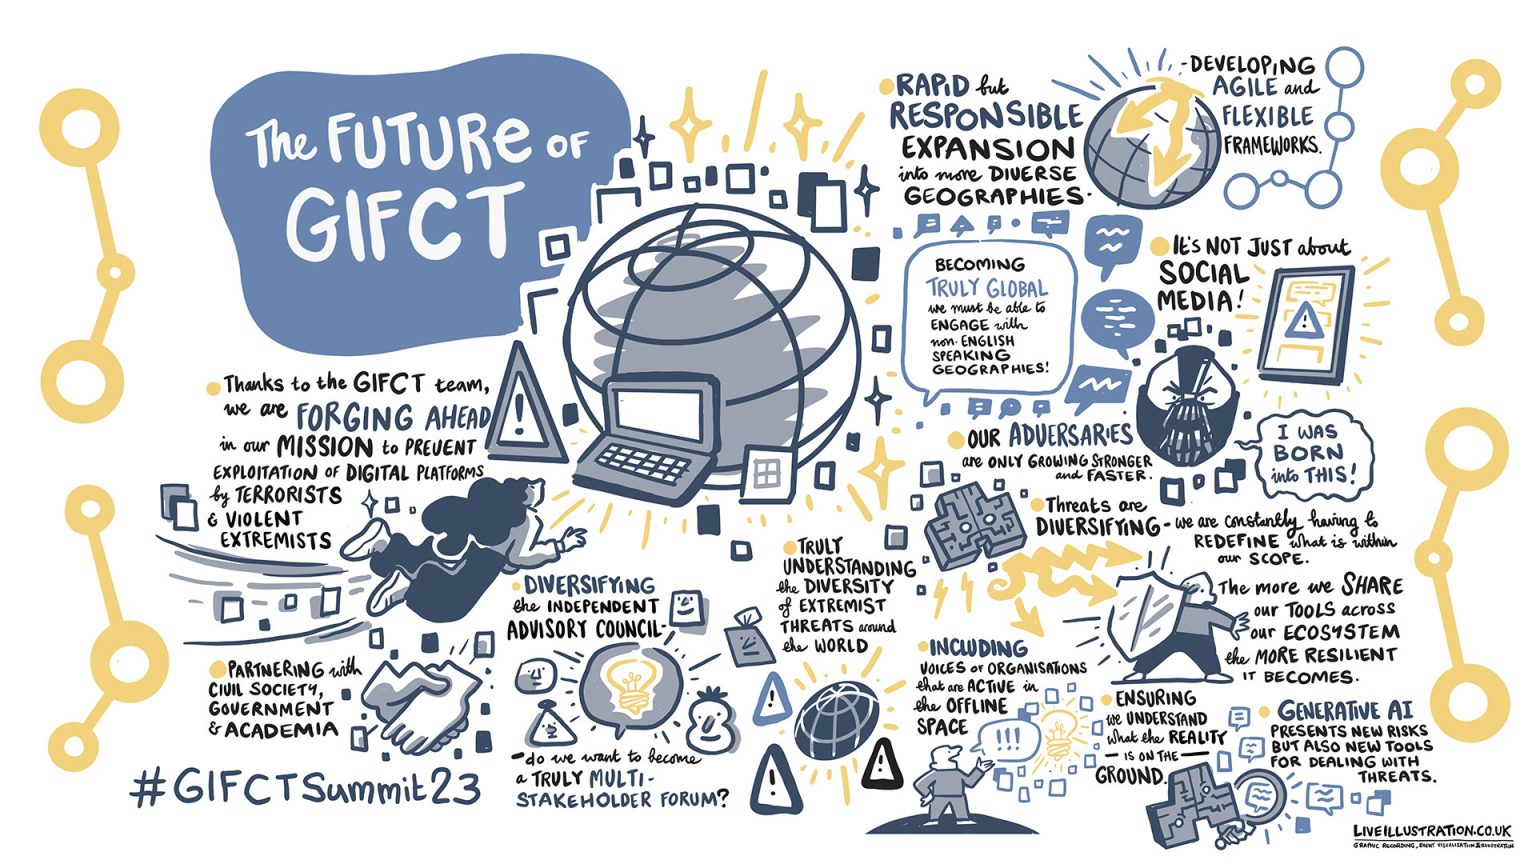 The FUTURE OF
GIFCT
Thanks to the GIFCT team,
we are FORGING AHEAD
in our MISSION to PREVENT
EXPLOITATION OF DIGITAL PLATFORMS
by TERRORISTS
& VIOLENT
EXTREMISTS
PARTNERING with
CIVIL SOCIETY,
GOVERNMENT
& ACADEMIA
#GIFCTSummit23
DIVERSIFYING
the INDEPENDENT
ADVISORY COUNCIL-
-do we want to become
a TRULY MULTI-
STAKEHOLDER FORUM?
TRULY
UNDERSTANDING
the DIVERSITY
of EXTREMIST
THREATS around
the WORLD
RAPID but
RESPONSIBLE
EXPANSION
into more DIVERSE
GEOGRAPHIES-
-DEVELOPING
AGILE and
FLEXIBLE
FRAMEWORKS.
BECOMING
TRULY GLOBAL
we must be able to
ENGAGE with
non-ENGLISH
SPEAKING
GEOGRAPHIES!
IT'S NOT JUST about
SOCIAL
MEDIA!
OUR ADVERSARIES
are ONLY GROWING STRONGER
and FASTER.
I WAS
BORN
into THIS!
Threats are
DIVERSIFYING - we are constantly having to
REDEFINE what is within
our SCOPE.
The more we SHARE
our TOOLS across
our ECOSYSTEM
the MORE RESILIENT
IT BECOMES.
INCLUDING
VOICES of ORGANISATIONS
that are ACTIVE in
the OFFLINE
SPACE
!!!
ENSURING
we UNDERSTAND
what the REALITY
- IS ON THE -
GROUND.
GENERATIVE AI
PRESENTS NEW RISKS
BUT ALSO NEW TOOLS
FOR DEALING WITH
THREATS.
LIVEILLUSTRATION.CO.UK
GRAPHIC RECORDING, EVENT VISUALISATION & ILLUSTRATION